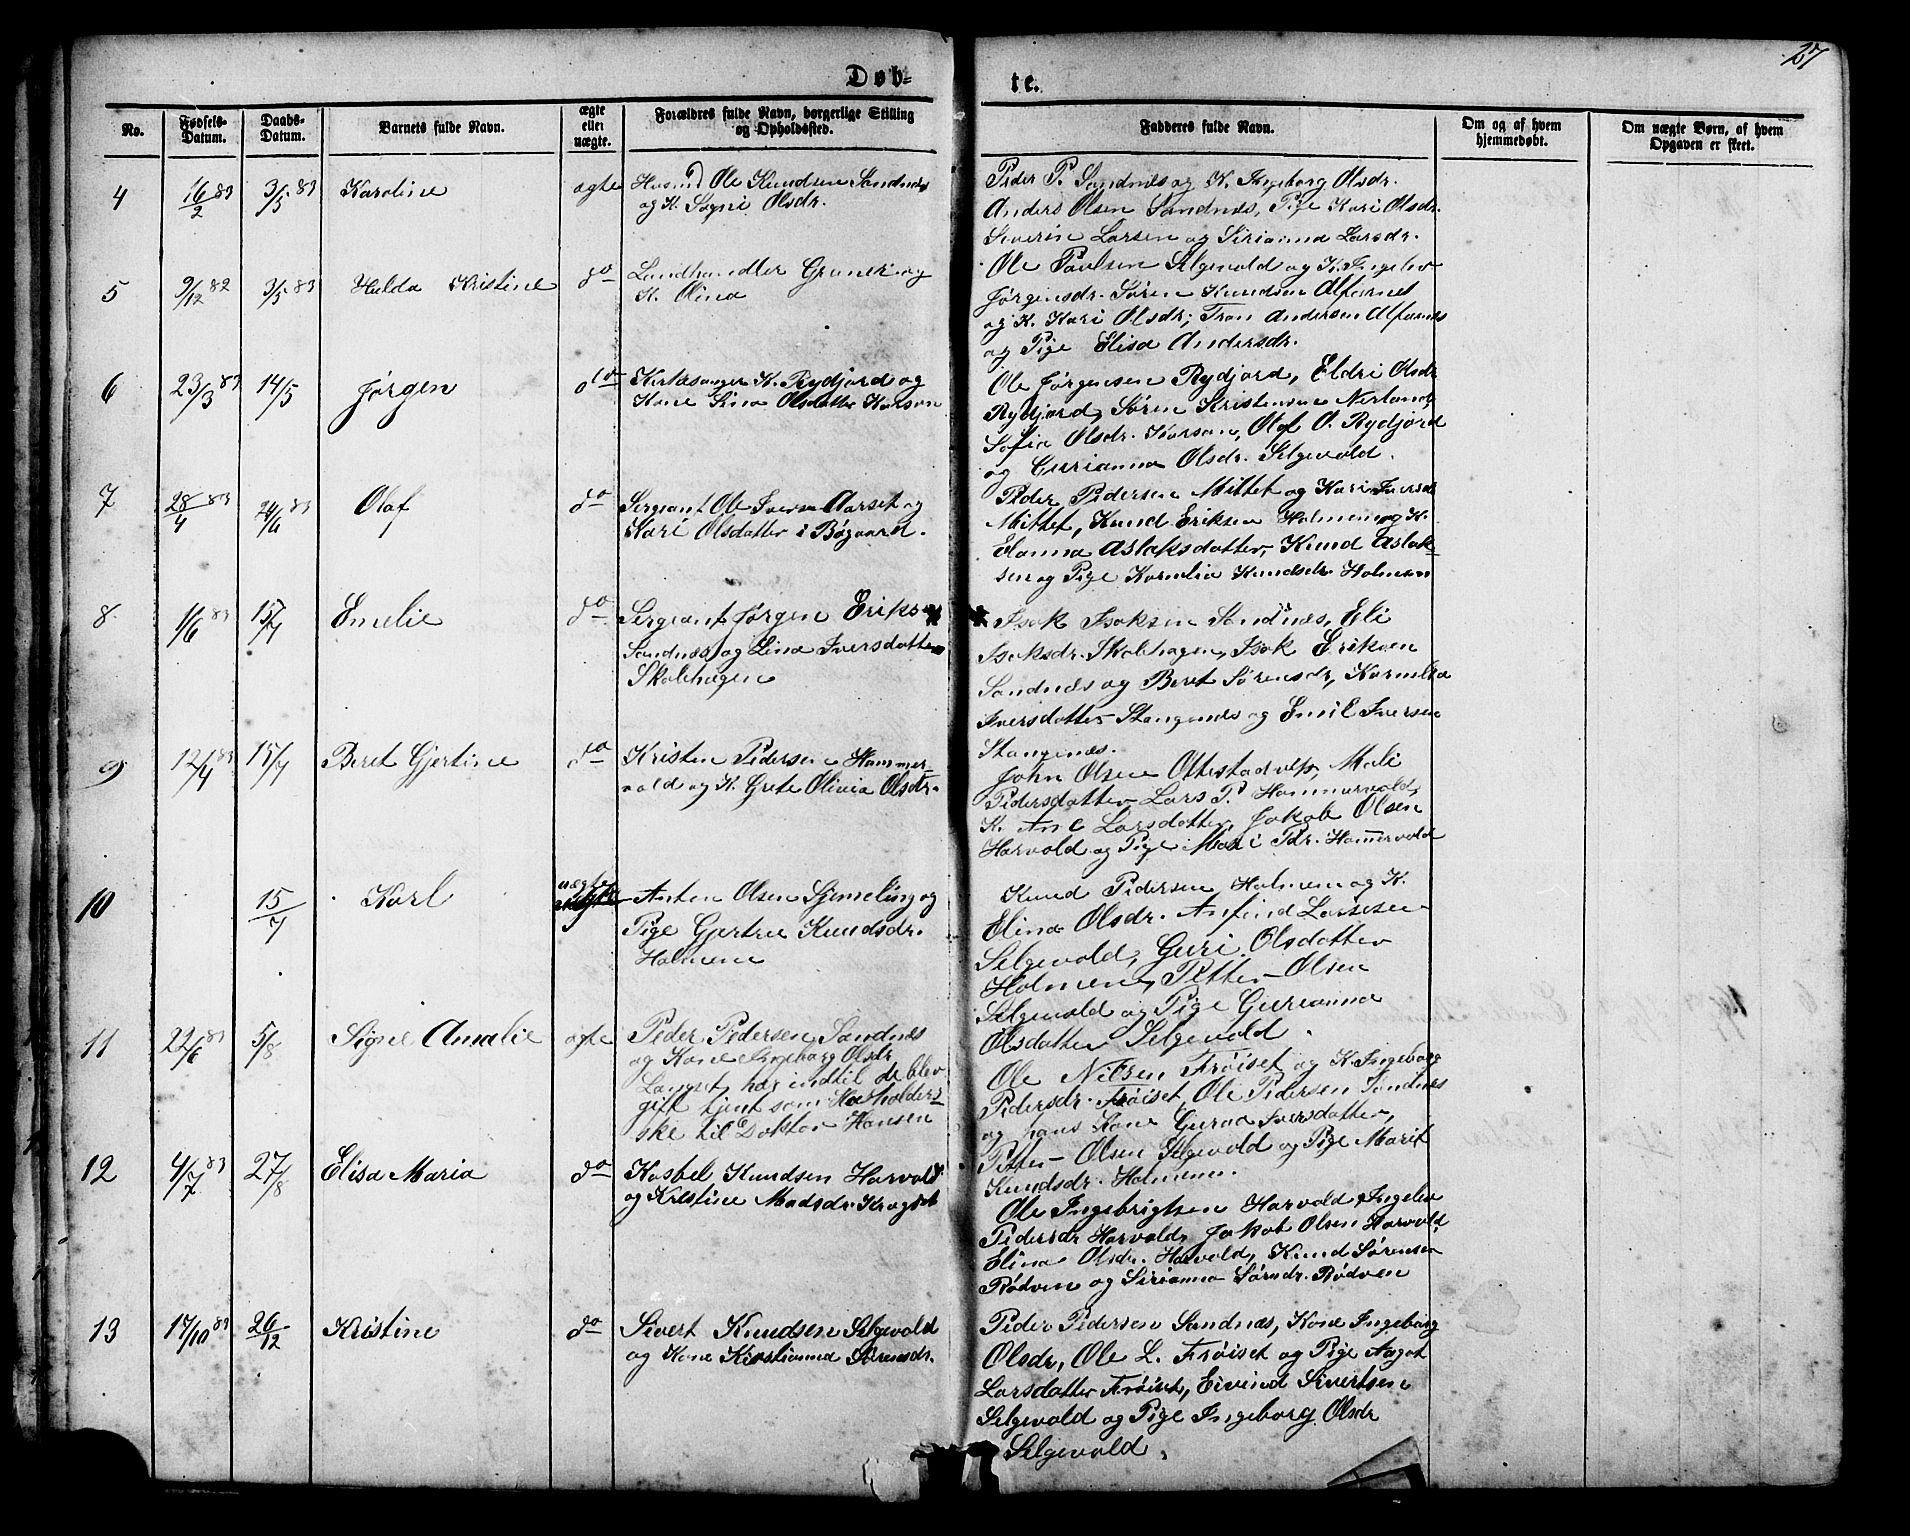 27
Døb=
te.
No.
Fødsels-
Datum.
Daabs-
Datum.
Barnets fulde Navn.
ægte
eller
uægte.
Forældres fulde Navn, borgerlige Stilling
og Opholdssted.
Fadderes fulde Navn.
Om og af hvem
hjemmedøbt.
Om uægte Børn, af hvem
Opgaven er skeet.
4 16/2 83 3/5 83 Karoline ægte
Husmd Ole Knudsen Sandnæs
og K. Sogni Olsdr.
Peder P. Sandnæs og K. Ingeborg Olsdr.
Anders Olsen Sandnæs, Pige Kari Olsdr.
Severin Larsen og Sirianna Larsdr.
5 9/12 82 3/5 83 Hulda Kristine do
Landhandler Grønning
K. Olina
Ole Paulsen Selgevold og K. Ingelev
Jørgensdr. Søren Knudsen Alfarnes
og K. Kari Olsdr, Tron Andersen Alfarnes
og Pige Elisa Andersdr.
6 23/3 83 14/5 Jørgen do
Kirkesanger K. Rydjord og
Kone Sina Olsdatter Korsan
Ole Jørgensen Rydjord, Eldri Olsdr
Rydjord, Søren Kristensen Nerland,
Sofia Olsdr. Korsan, Olaf O. Rydjord
og Gurianna Olsdr. Selgevold.
7 28/4 83 24/6 83 Olaf do
Sergeant Ole Iversen Aarset og
Kari Olsdatter i Bøgaard.
Peder Pedersen Mittet og Kari Iversd
Mittet, Knud Eriksen Holmem og K.
Elanna Aslaksdatter, Knud Aslak-
sen og Pige Kornelia Knudsdr Holmem
8. 1/6 83 15/7 Emelie do
Sergeant Jørgen Eriks
Sandnæs og Lina Iversdatter
Skolehagen
Isak Isaksen Sandnæs, Eli
Isaksdr. Skolehagen, Isak Eriksen
Sandnæs og Beret Sørensdr, Kornelia
Iversdatter Stangenes og Emil Iversen
Stangenæs.
9 12/4 83 15/7 Beret Gjertine do
Kristen Pedersen Hammer-
vold og K. Grete Olivia Olsdr.
John Olsen Ottestad, Mali
Pedersdatter Lars P. Hammervold,
K. Ane Larsdatter, Jakob Olsen
Harvold og Pige Mari Pdr. Hammervold
10 15/7 Karl uægte
Anton Olsen Sjømeling og
Pige Gjertrue Knudsdr.
Holmem
Knud Pedersen Holmem og K.
Elina Olsdr. Anfind Lassesen
Selgevold, Guri Olsdatter
Holmen, Petter Olsen
Selgevold og Pige Gurianna
Olsdatter Selgevold.
11 22/6 83 5/8 Signe Amalie ægte
Peder Pedersen Sandnæs
og Kone Ingeborg Olsdr
Langset, har indtil de blev
gift tjent som Husholders-
ske til Doktor Hansen
Ole Nilsen Frøiset og K. Ingeborg
Pedersdr. Frøiset, Ole Pedersen Sandnes
og hans Kone Guroa Iversdatter,
Petter Olsen Selgevold og Pige Marit
Knudsdr. Holmem.
12 4/7 83 27/8 Elisa Maria do
Kasbel Knudsen Harvold
og Kristine Madsdr. Kragset
Ole Ingebrigtsen Harvold, Ingelev
Pedersdr Harvold, Jakob Olsen Harvold,
Elina Olsdr. Harvold, Knud Sørensen
Rødven og Sirianna Sørnsdr. Rødven
13 17/10 83 26/12 Kristine do
Sivert Knudsen Selgevold
og Kone Kirstianna Sørensdr.
Peder Pedersen Sandnæs, Kone Ingeborg
Olsdr, Ole L. Frøiset og Pige Aagot
Larsdatter Frøiset, Eivind Sivertsen
Selgevold og Pige Ingeborg Olsdr
Selgevold.